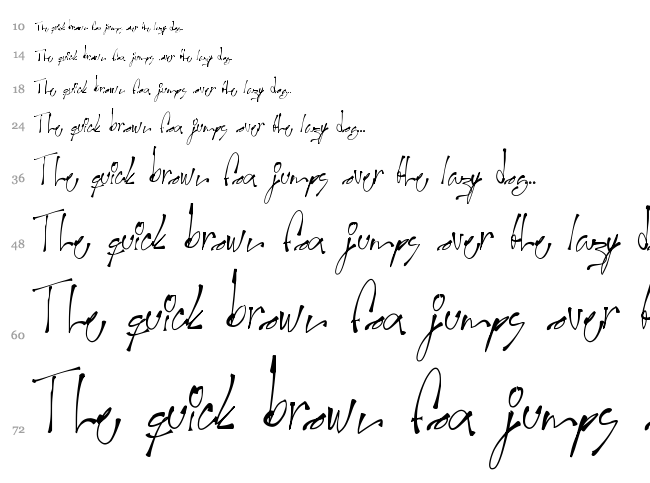 10 The quick brown fox jumps over the lazy dog..
14 The quick brown fox jumps over the lazy dog..
18 The quick brown fox jumps over the lazy dog..
24 The quick brown fox jumps over the lazy dog..
36 The quick brown fox jumps over the lazy dog..
48 The quick brown fox jumps over the lazy d
60 The quick brown fox jumps over t
72 The quick brown fox jumps